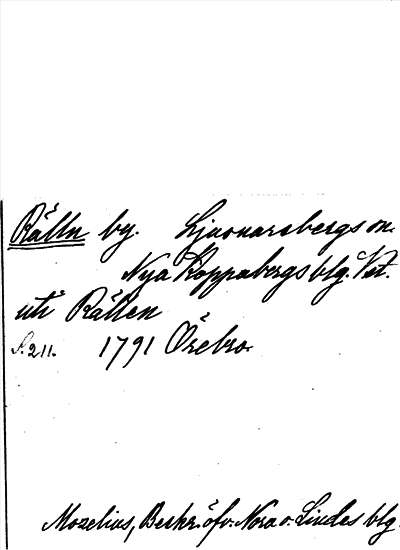 Rälln by. Ljusnarsbergs sn.
Nya Kopparbergs blg. Vet.
uti Rällen
S. 211. 1791 Örebro.
Mozelius, Beskr. öfv. Nora o. Lindes blg.